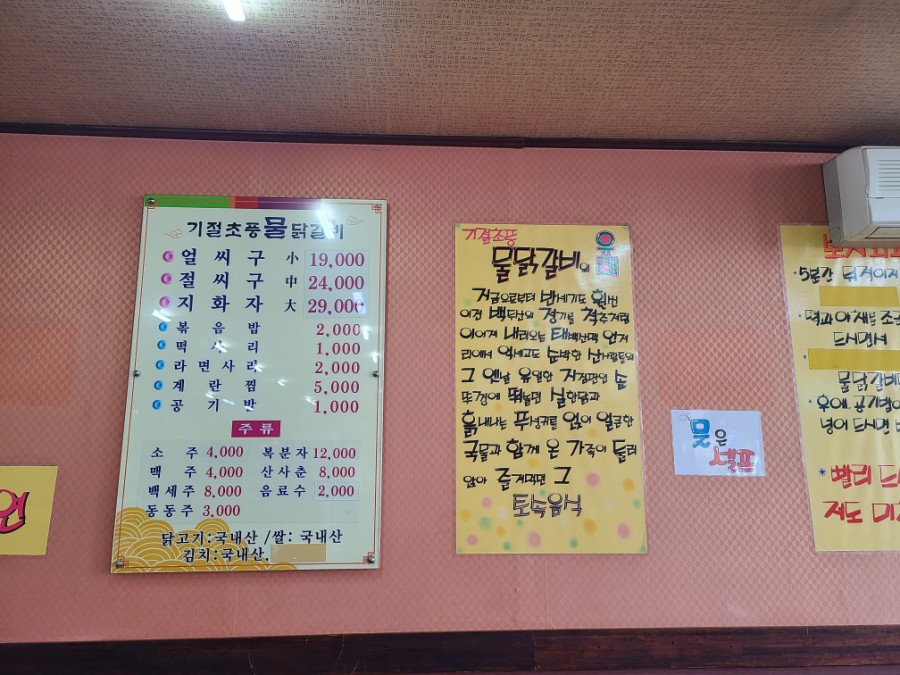 기절초풍물닭갈비
얼씨구 小 19,000
절씨구 中 24,000
지화자 大 29,000
볶음밥 2,000
떡사리 1,000
라면사리 2,000
계란찜 5,000
공기밥 1,000
주류
소주 4,000 복분자 12,000
맥주 4,000 산사춘 8,000
백세주 8,000 음료수 2,000
동동주 3,000
닭고기:국내산 /쌀: 국내산
김치:국내산.
기절초풍
물닭갈비.
지금으로부터 반세기도 훨씬
이전 백두산의 정기를 척추처럼
이어져 내려오는 태백산맥 언저
리에서 억세고도 순박한 산사람들의
그 옛날 유일한 지점판인 솥
뚜껑에 떡놀던 실한닭과
흙내나는 푸성귀를 넣어 얼큰한
국물과 함께 온 가족이 둘러
앉아 즐겨먹던 그
토속음식
물은
셀프
5분간 뒤적이지
떡과 야채는
드시면서
물닭갈비
후에 공기밥
넣어 드시면
빨리 드
저도